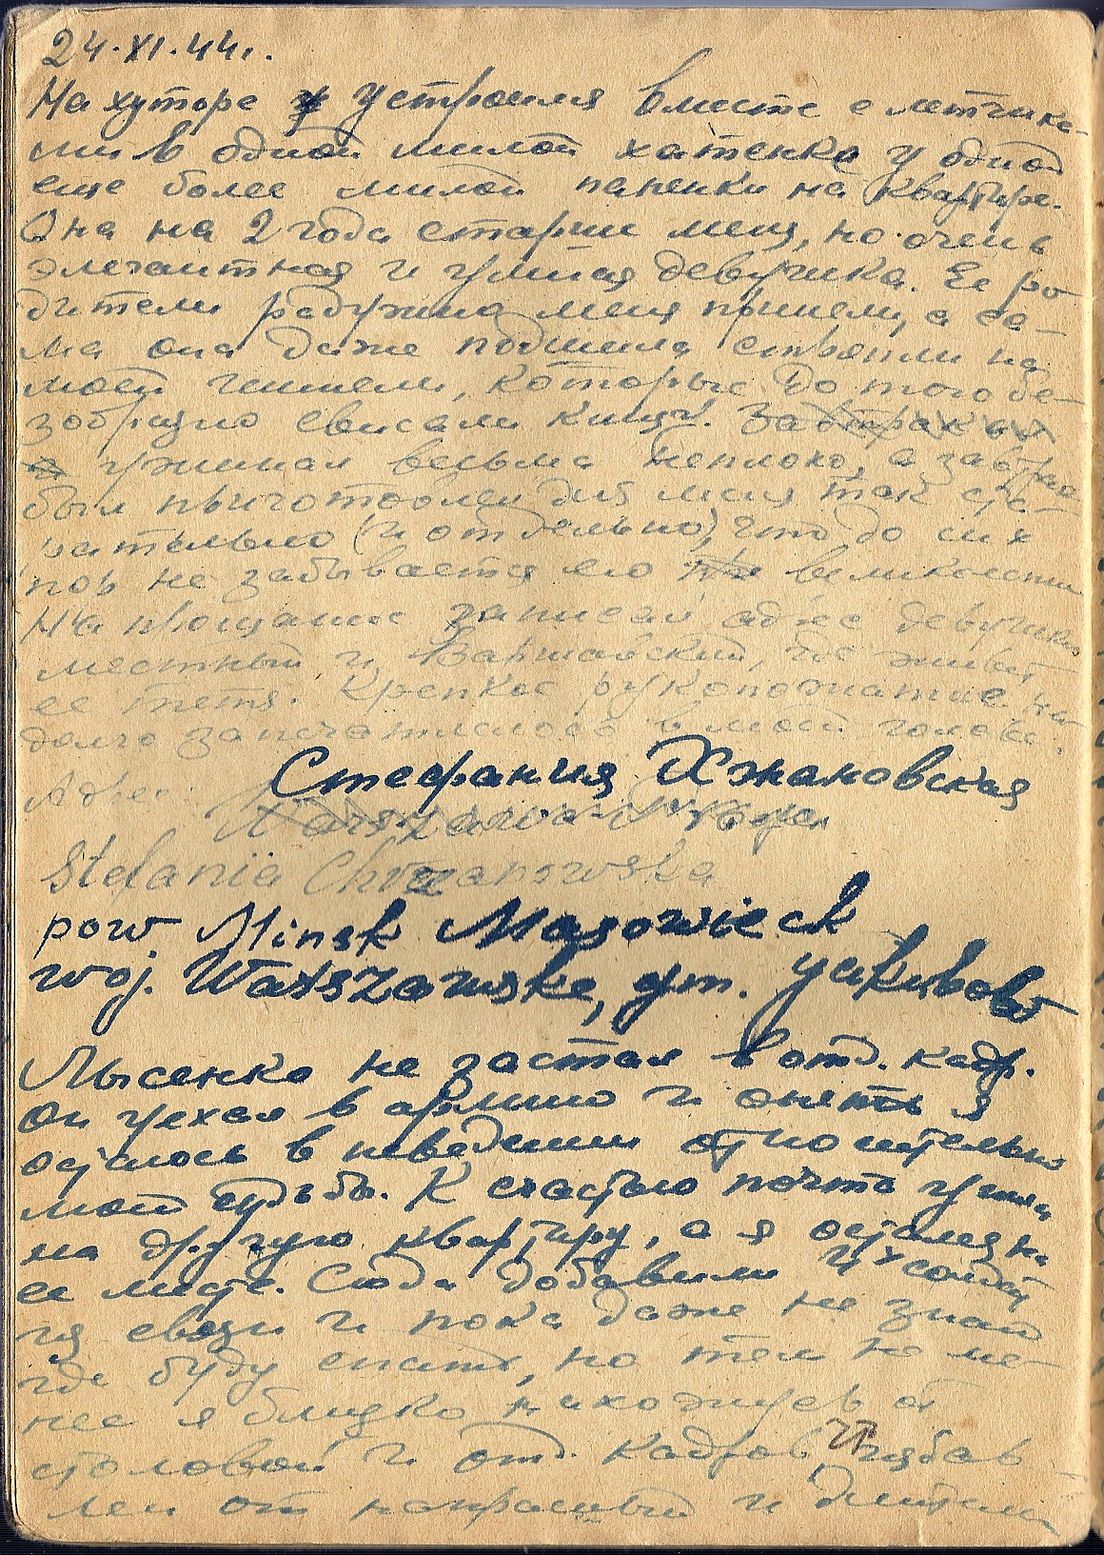 24.XI.44г.
На хуторе устроился вместе с летчика-
ми в одной милой хатенке у одной
еще более милой паненки на квартире.
Она на 2 года старше меня, но очень
элегантная и умная девушка. Ее ро-
дители радушно меня приняли, а са-
ма она даже подшила стропы на
моей шинели, которые до того бе-
зобразно свисали книзу. Завтракал
и ужинал весьма неплохо, а завтрак
был приготовлен для меня так ста-
рательно (и отдельно), что до сих
пор не забывается его великолепие
На прощание записал адрес девушки
местный и Варшавский, где живет
ее тетя. Крепкое рукопожатие на-
долго запечатлелось в моей голове.
Адрес: Стефания Хжановская
Warszawa
Stefania Chrzanowska
pow Minsk Masowieck
woj. Warszawske, gm. Yakubow
Лысенко не застал в отд. кадр.
Он уехал в армию и опять я
остаюсь в неведении относительно
моей судьбы. К счастью почта ушла
на другую квартиру, а я остался на
ее месте. Сюда добавили 4х солдат
из связи и пока даже не знаю
где буду спать, но тем не ме-
нее я близко нахожусь от
столовой и отд. кадров, и избав-
лен от напрасных и длительн